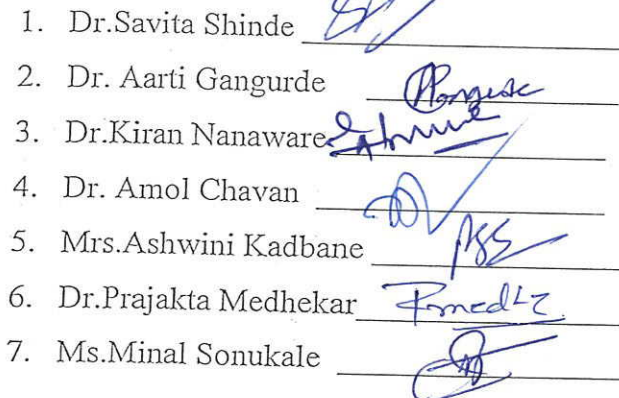 1. Dr.Savita Shinde
2. Dr. Aarti Gangurde
3. Dr.Kiran Nanaware
4. Dr. Amol Chavan
5. Mrs.Ashwini Kadbane
6. Dr.Prajakta Medhekar
7. Ms.Minal Sonukale